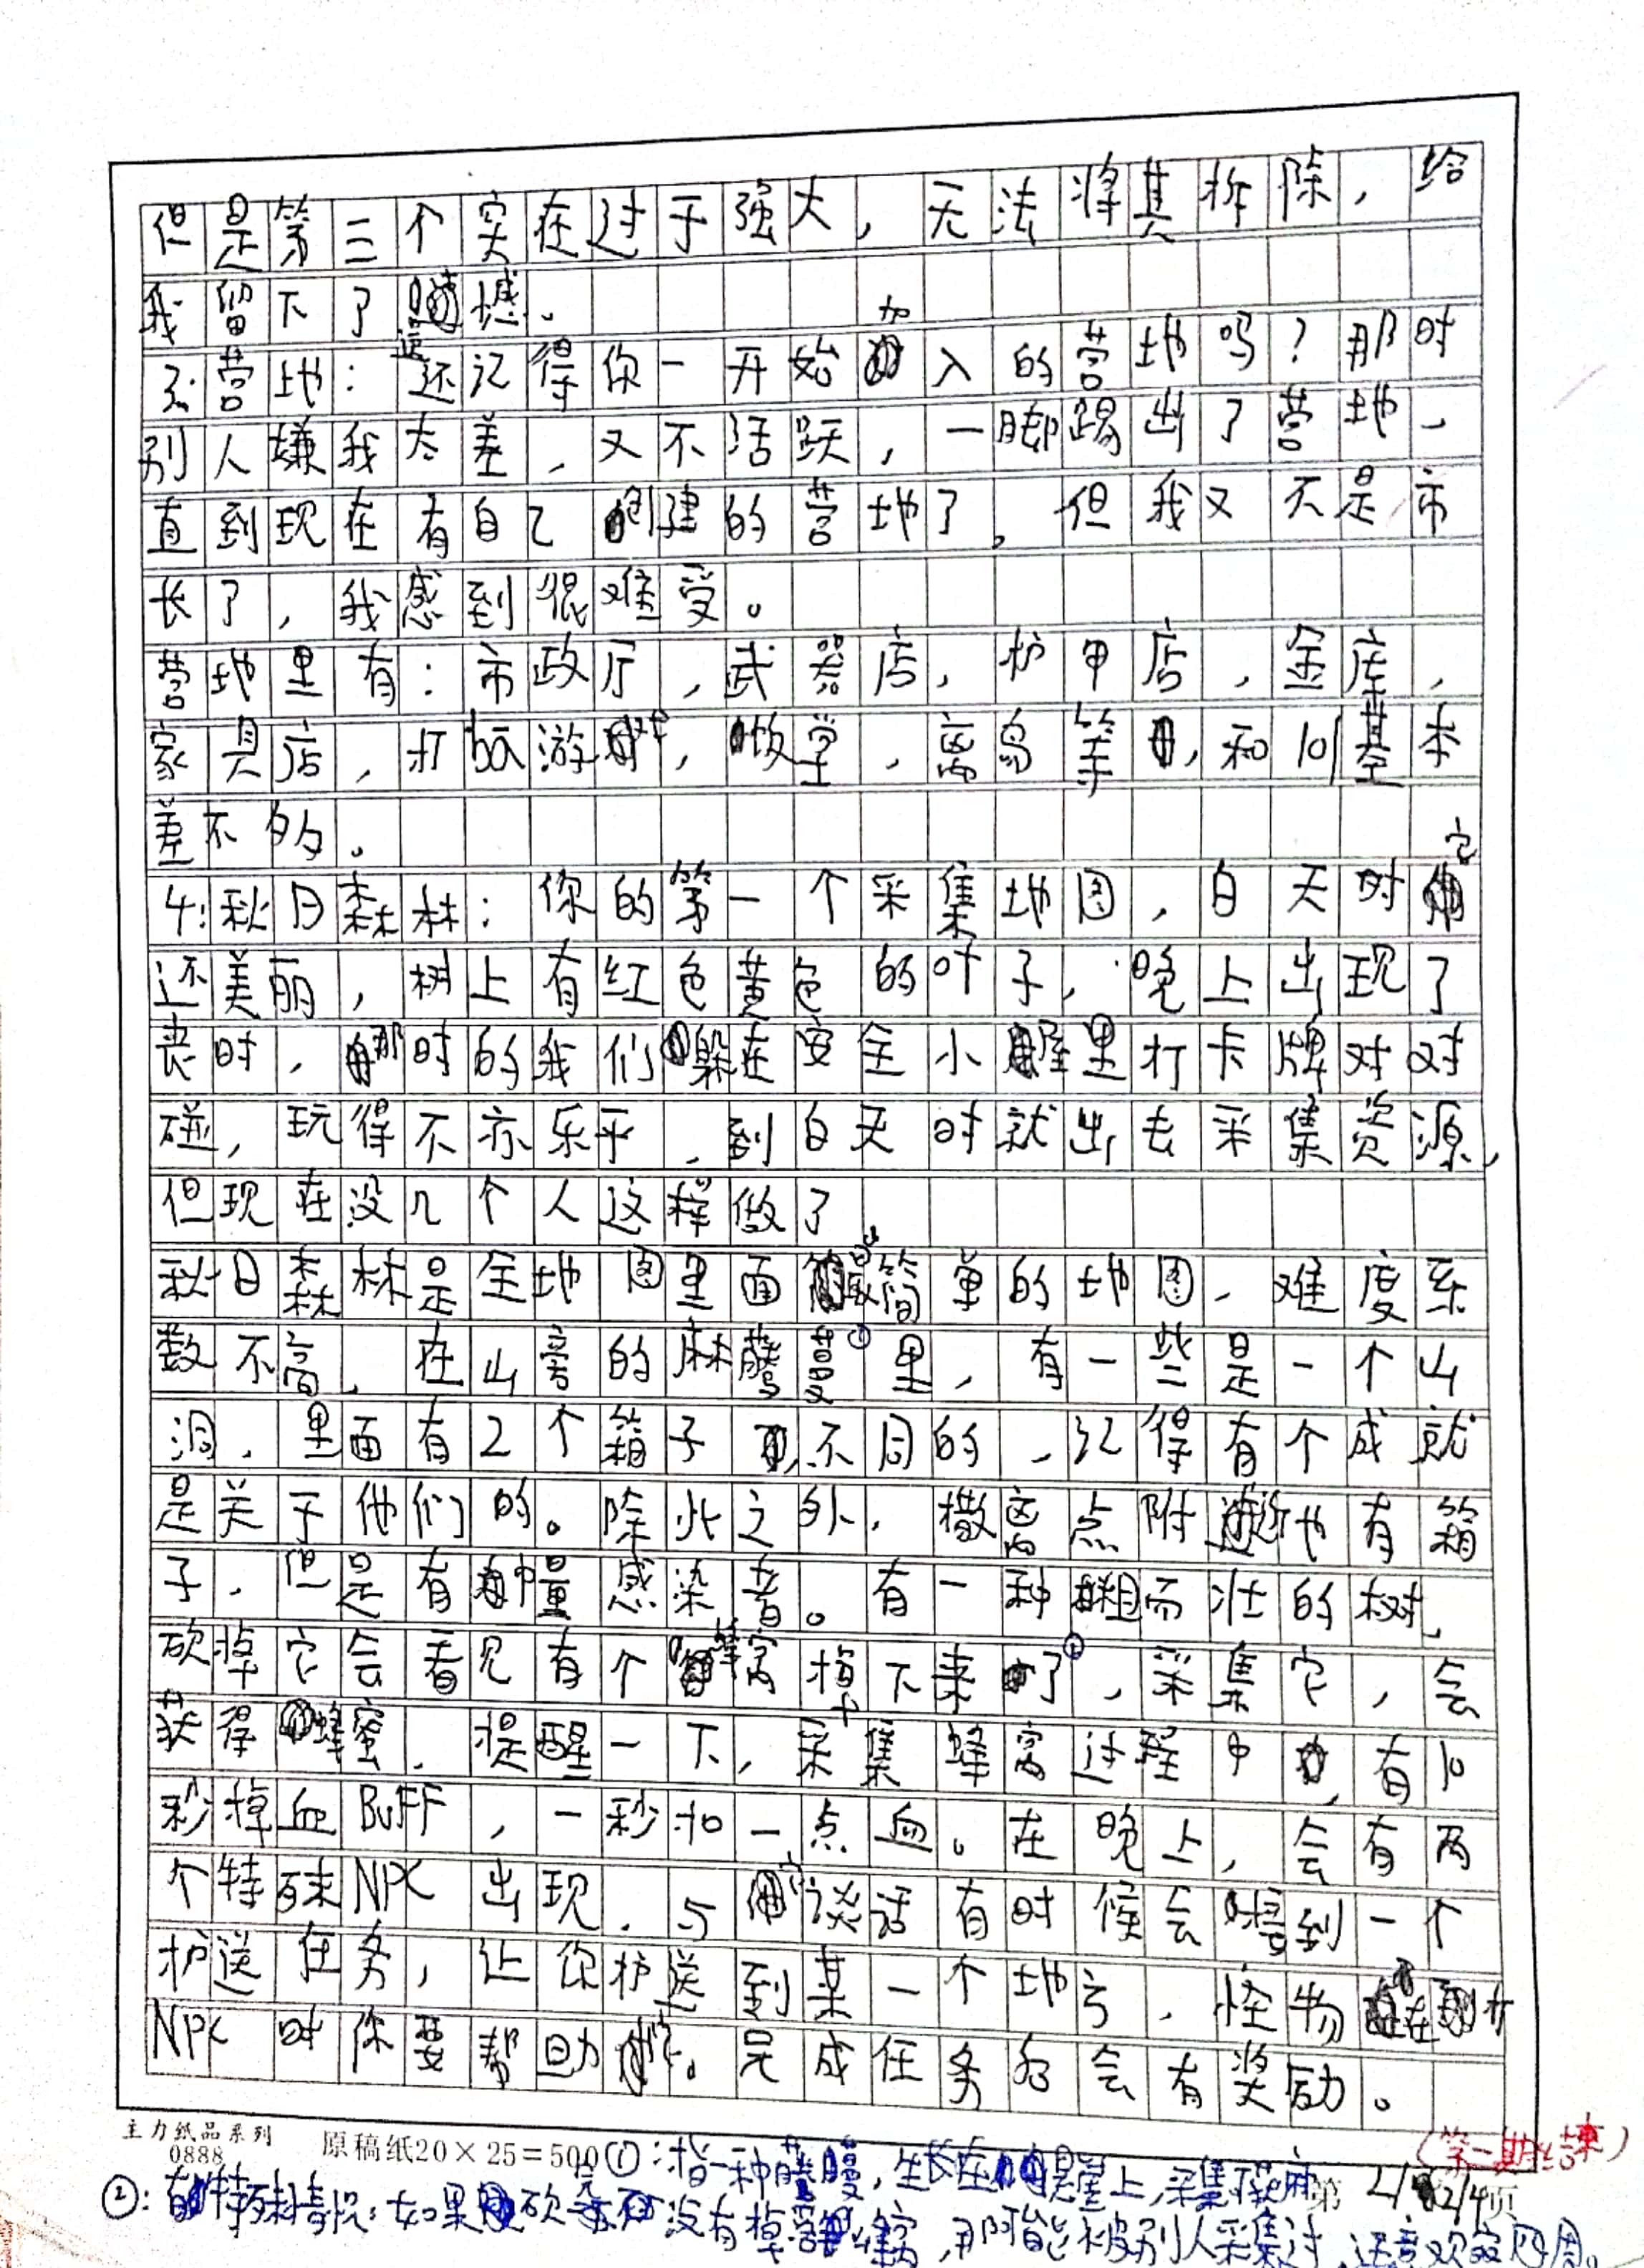 但是第三个实在过于强大，无法将其拆除，给
我留下了遗憾。
3:营地：还记得你一开始加入的营地吗？那时
别人嫌我太差，又不活跃，一脚踢出了营地，
直到现在有自己创建的营地了。但我又不是市
长了，我感到很难受。
营地里有：市政厅，武器店，护甲店，金库，
家具店，打玩游戏，做堂，离岛等，和101基本
差不多。
4:秋日森林：你的第一个采集地图，白天时它
还美丽，树上有红色黄色的叶子，晚上出现了
丧时，那时的我们躲在安全小屋里打卡牌对对
碰，玩得不亦乐乎，到白天时就出去采集资源，
但现在没几个人这样做了
秋日森林是全地图里面最简单的地图，难度系
数不高，在山旁的麻藤蔓①里，有一些是一个山
洞，里面有2个箱子不同的，记得有个成就
是关于他们的。除此之外，撤离点附近也有箱
子，但是有中量感染者。有一种粗而壮的树，
砍掉它会看见有个蜂窝掉下来了②，采集它，会
获得蜂蜜，提醒一下，采集蜂窝过程中，有10
秒掉血BUFF，一秒扣一点血。在晚上，会有两
个特殊NPC出现，与谈话有时候会得到一个
护送任务，让你护送到某一个地方，怪物在
NPC时你要帮助。完成任务后会有奖励。
主力纸品系列
0888
原稿纸20×25=500
(第一期结束)
①:指一种藤蔓，生长在悬崖上，采集获麻
第 页
②:特殊情况：如果砍完没有掉蜂窝，那可能被别人采集过，注意观察四周。